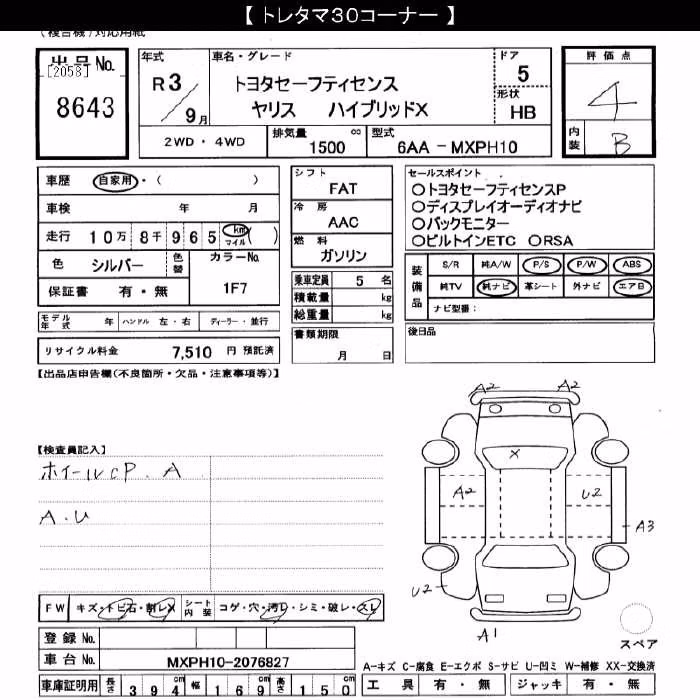 【 トレタマ30コーナー 】
(複合機)対応用紙
出品No.
[2058]
8643
年式
R3/9月
車名・グレード
トヨタセーフティセンス
ヤリス ハイブリッドX
ドア
5
形状
HB
2WD・4WD
排気量 cc
1500
型式
6AA-MXPH10
評価点
4
内装
B
車歴 自家用・( )
車検 年 月
走行 10万 8千 965 km マイル ( )
色 シルバー 色替
カラーNo.
1F7
保証書 有・無
モデル年式 年 ハンドル 左・右 ディーラー・並行
リサイクル料金 7,510 円 預託済
シフト
FAT
冷房
AAC
燃料
ガソリン
乗車定員 5 名
積載量 kg
総重量 kg
書類期限
月 日
セールスポイント
○トヨタセーフティセンスP
○ディスプレイオーディオナビ
○バックモニター
○ビルトインETC ○RSA
装備品
S/R 純A/W P/S P/W ABS
純TV 純ナビ 革シート 外ナビ エアB
ナビ型番:
後日品
【出品店申告欄(不良箇所・欠品・注意事項等)】
【検査員記入】
ホイールCP. A
A.U
A2 A2
X
A2 U2
A3
U2
A1
スペア
FW キズ・トビ石・割レX シート内装 コゲ・穴・汚レ・シミ・破レ・スレ
登録No.
車台No. MXPH10-2076827
車庫証明用 長さ 394cm 幅 169cm 高さ 150cm
A-キズ C-腐食 E-エクボ S-サビ U-凹ミ W-補修 XX-交換済
工具 有・無 ジャッキ 有・無